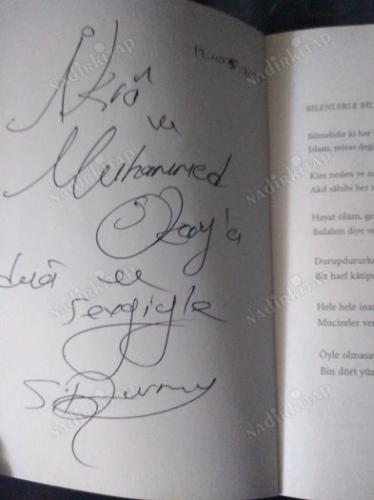 ve
Muhammed
Özay'a
duâ ve
sevgiyle
BİLENLERLE BİL
Bilmelidir ki her
İslam, miras deği
Kim neden ve n
Akıl sâhibi her
Hayat ölüm, g
Bulalım diye v
Durupdururk
Bir harf kâtip
Hele hele inan
Mucizeler ver
Öyle olmasa
Bin dört yüz
NADİRKİTAP